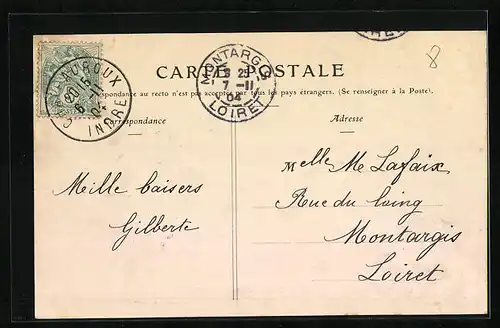 CHATEAUROUX
INDRE
MONTARGIS
8 25
7 -11
04
LOIRET
CARTE POSTALE
Correspondance au recto n'est pas acceptée par tous les pays étrangers. (Se renseigner à la Poste).
Correspondance
Adresse
Mille baisers
Gilberte
Melle M Lafaix
Rue du loing
Montargis
Loiret
8